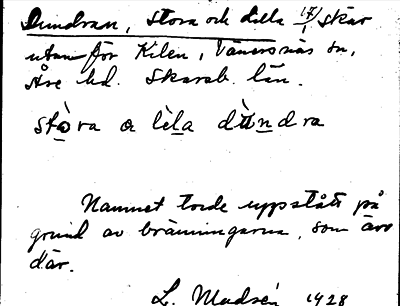 Dundran, Stora och Lilla, skär
utanför Kilen, Vänersnäs sn,
Åse hd. Skarab. län.
stòra o lìla dùndra
Namnet torde uppstått på
grund av bränningarna, som äro
där.
L. Modsén 1928